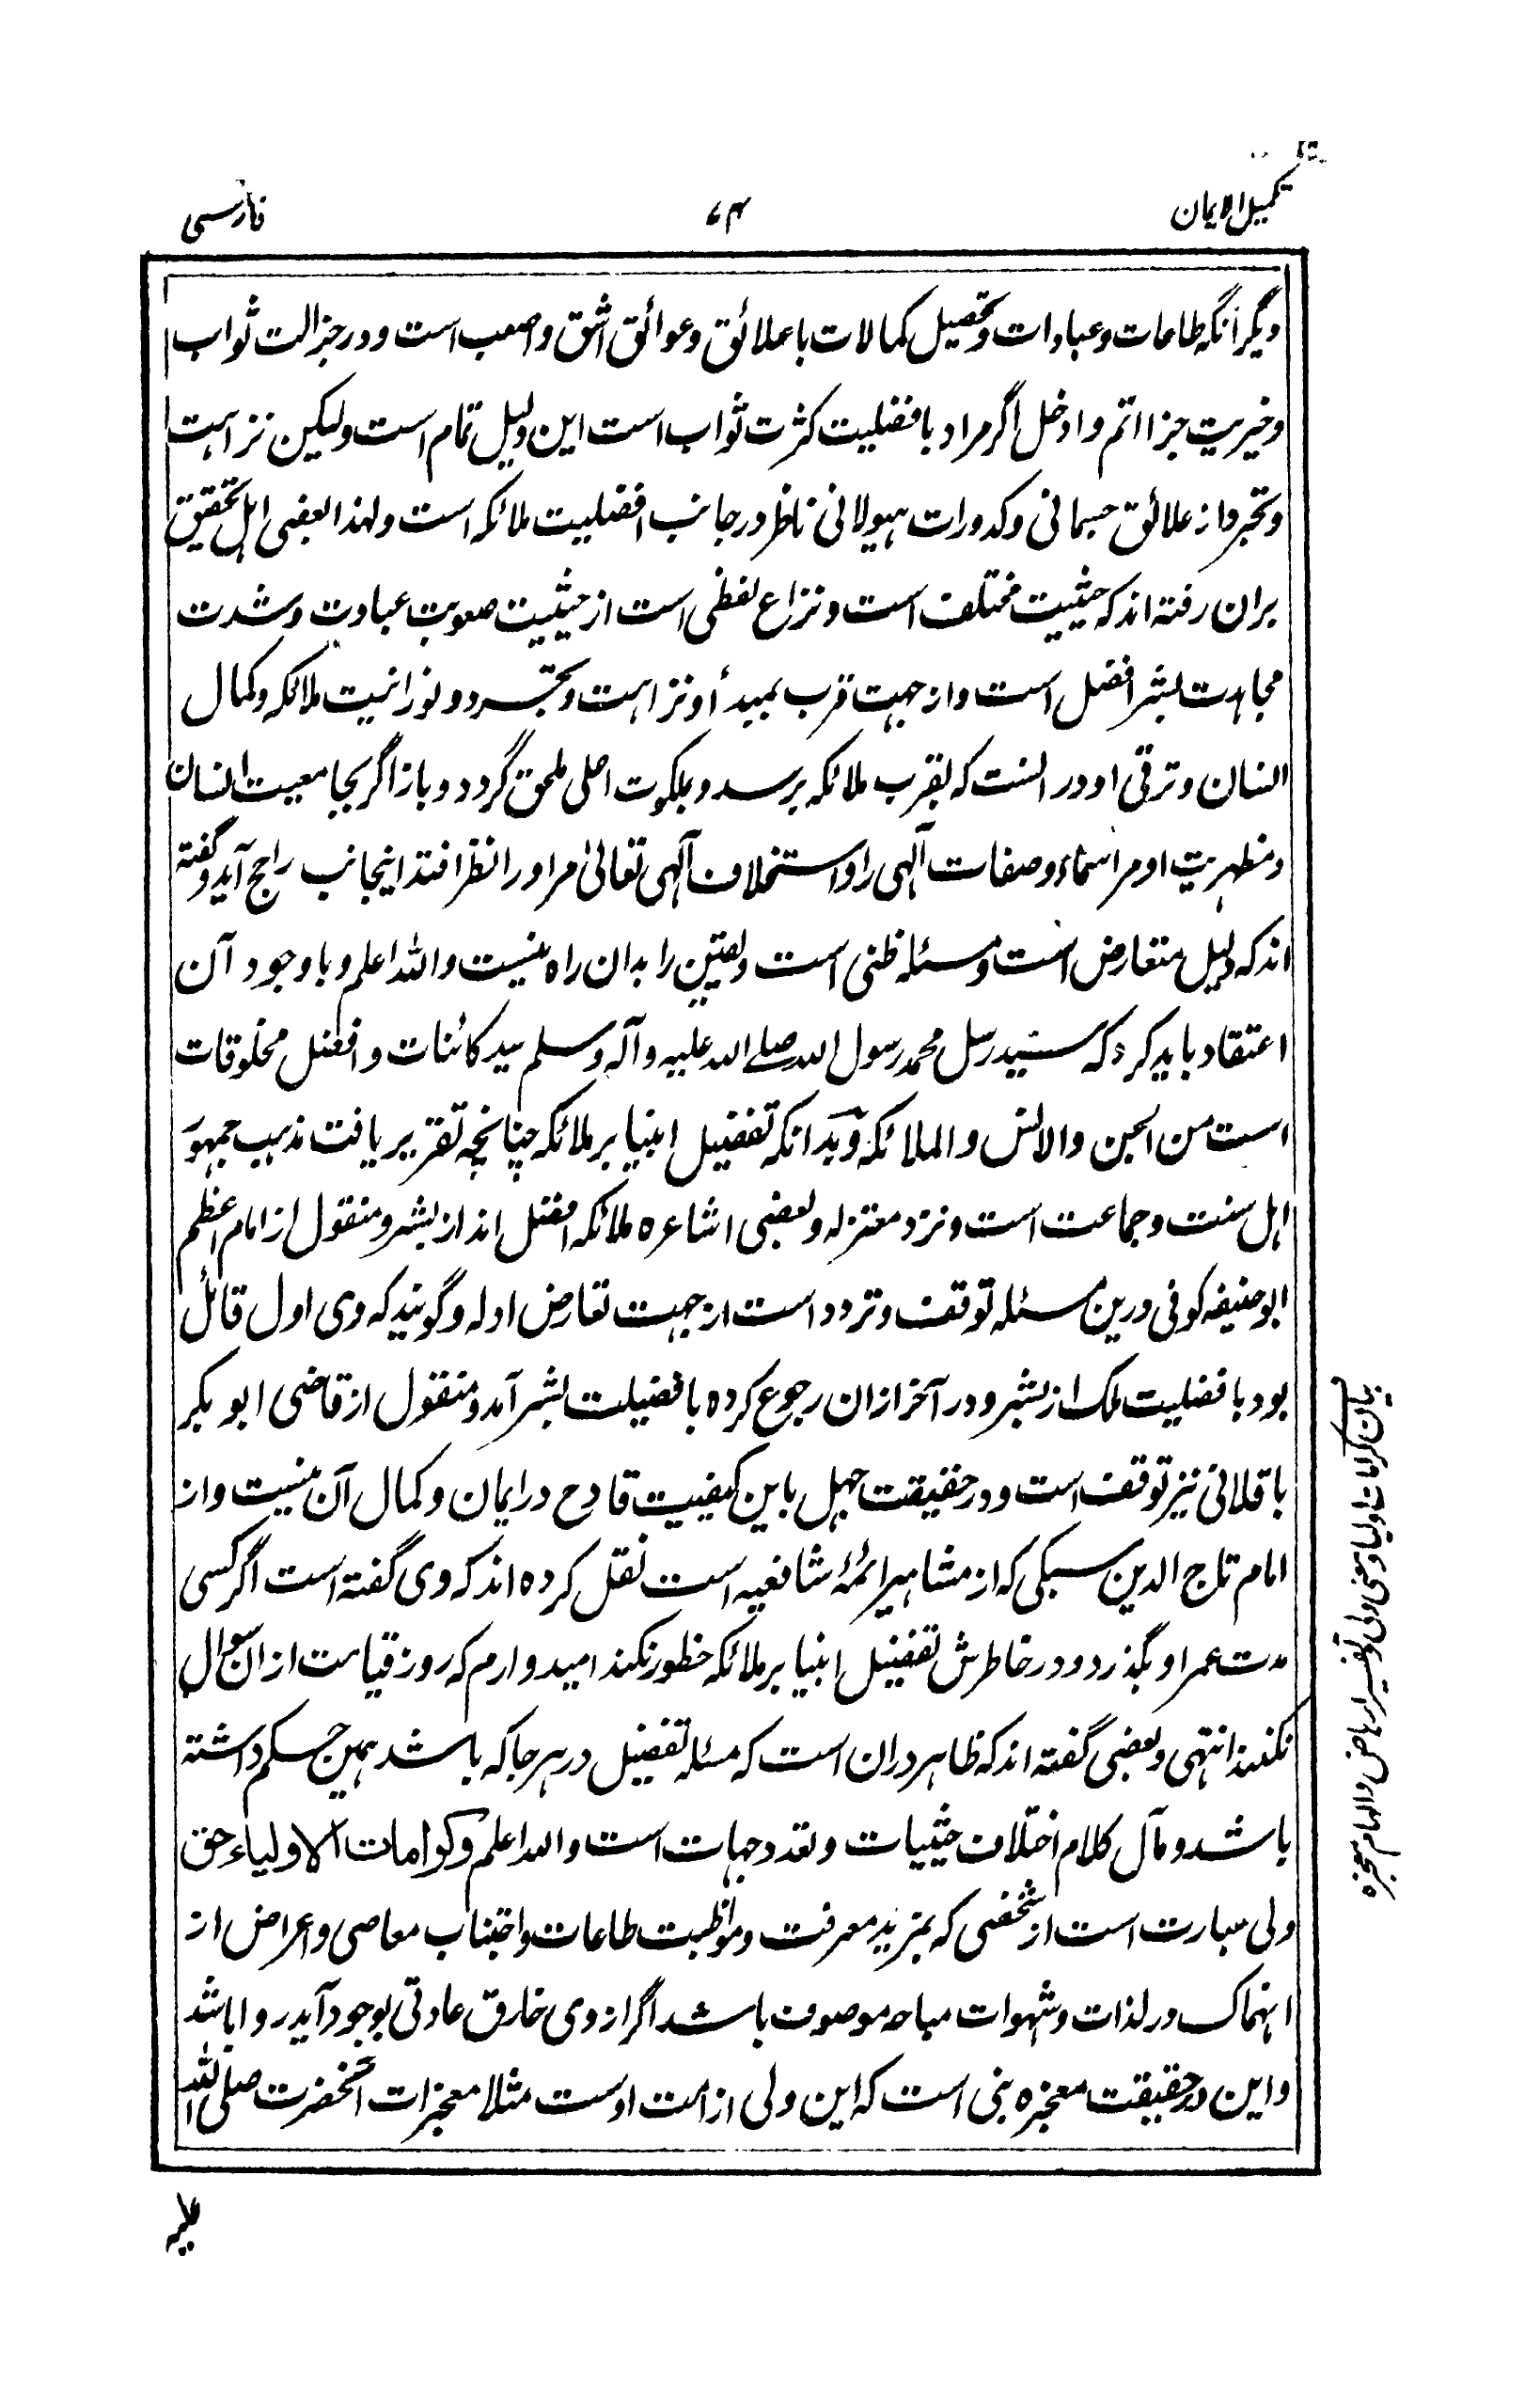 تکمیل الایمان
۷۴
فارسی
دیگر آنکه طاعات و عبادات و تحصیل کمالات با علائق و عوائق اشق و اصعب است و در جزالت ثواب
و خیریت جزا اتم و ادخل اگر مراد بافضلیت کثرت ثواب است این دلیل تمام است ولیکن نزاهت
و تجرد از علائق جسمانی و کدورات هیولانی ناظر در جانب افضلیت ملائکه است ولهذا بعضی اهل تحقیق
بران رفته اند که حیثیت مختلف است و نزاع لفظی است از حیثیت صعوبت عبادت و شدت
مجاهدت بشر افضل است و از جهت قرب بمبدأ و نزاهت و تجرد و نورانیت ملائکه و کمال
انسان و ترقی او در انست که بقرب ملائکه برسد و بملکوت اصلی ملحق گردد و باز اگر بجامعیت انسان
و مظهریت او مر اسماء و صفات آلهی را و استخلاف آلهی تعالیٰ مر او را نظر افتد اینجانب راجح آید و گفته
اند که دلیل متعارض است و مسئله ظنی است و یقین را بدان راه نیست والله اعلم و با وجود آن
اعتقاد باید کرد که سید رسل محمد رسول الله صلے الله علیه و آله وسلم سید کائنات و افضل مخلوقات
است من الجن والانس والملائکه و بدانکه تفضیل انبیا بر ملائکه چنانچه تقریر یافت مذهب جمهور
اهل سنت و جماعت است و نزد معتزله و بعضی اشاعره ملائکه افضل اند از بشر و منقول از امام اعظم
ابو حنیفه کوفی درین مسئله توقف و تردد است از جهت تعارض ادله و گویند که وی اول قائل
بود بافضلیت ملک از بشر و در آخر ازان رجوع کرده بافضیلت بشر آمد و منقول از قاضی ابو بکر
باقلانی نیز توقف است و در حقیقت جهل باین کیفیت قادح در ایمان و کمال آن نیست و از
امام تاج الدین سبکی که از مشاهیر ائمهٔ شافعیه است نقل کرده اند که وی گفته است اگر کسی
مدت عمر او بگذرد و در خاطرش تفضیل انبیا بر ملائکه خطور نکند امیدوارم که روز قیامت ازان سوال
نکنند انتهی و بعضی گفته اند که ظاهر دران است که مسئله تفضیل در هر جا که باشد همین حکم داشته
باشد و مآل کلام اختلاف حیثیات و تعدد جهات است والله اعلم وکرامات الاولیاء حق
ولی عبارت است از شخصی که بمزید معرفت و مواظبت طاعات و اجتناب معاصی و اعراض از
انهماک در لذات و شهوات مباحه موصوف باشد اگر از وی خارق عادتی بوجود آید روا باشد
و این در حقیقت معجزه نبی است که این ولی از امت اوست مثلا معجزات آنحضرت صلی الله
علیه
بیان کرامات اولیا و معنی ولی و تفسیر ارهاص و الهام معجزه